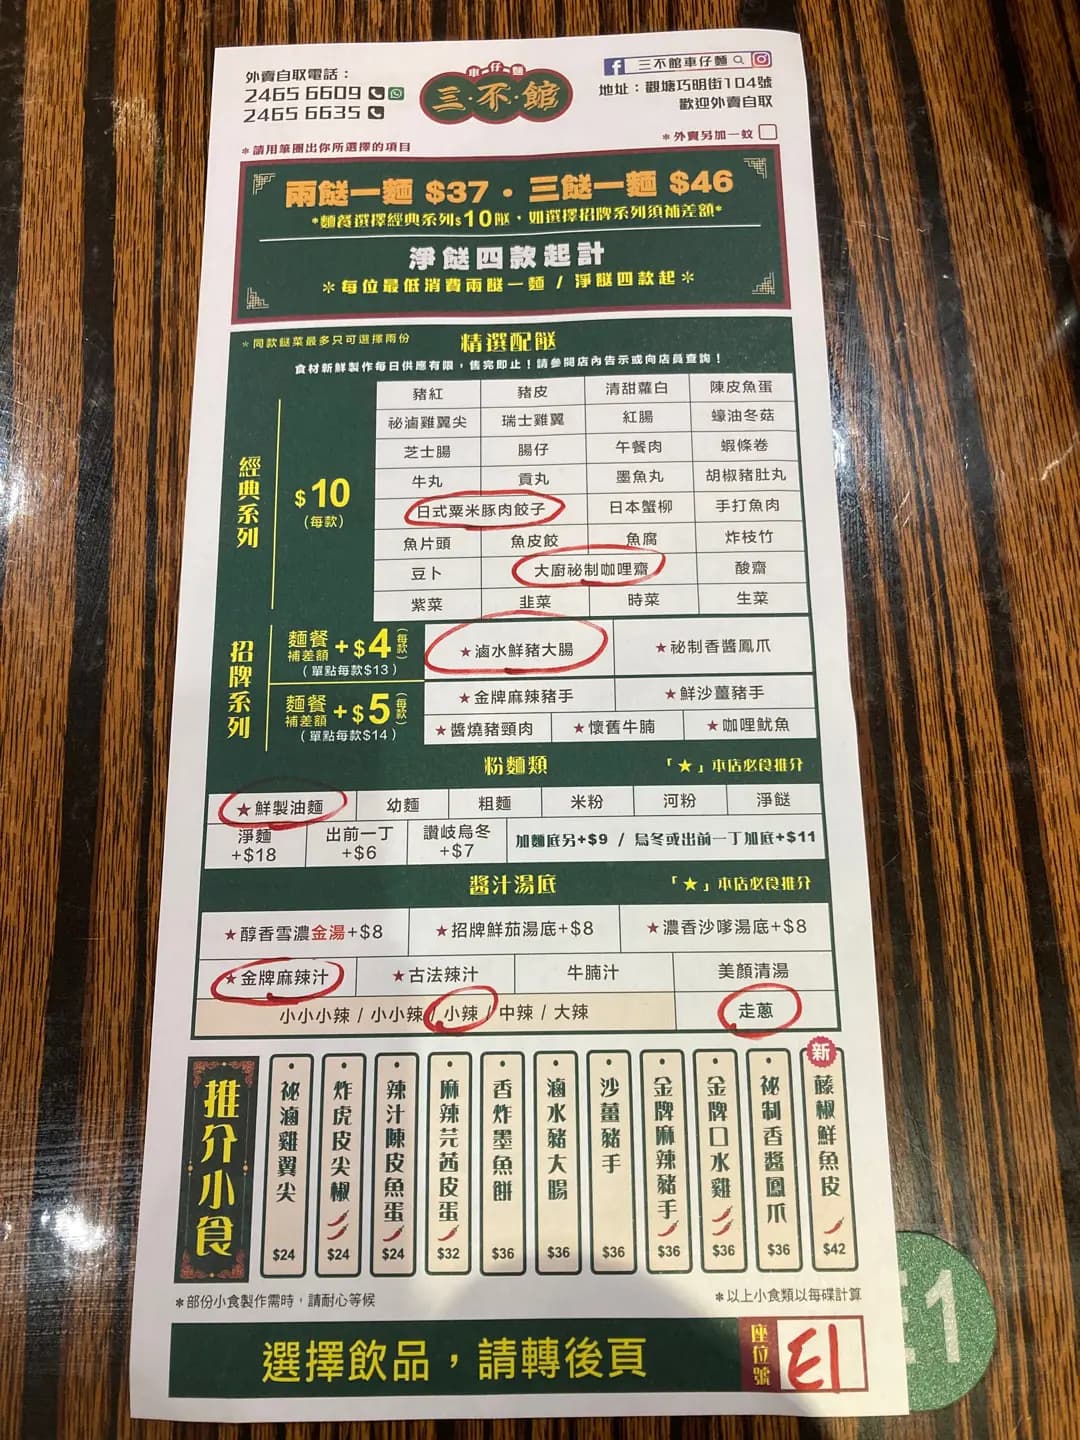 外賣自取電話：
2465 6609
2465 6635
車仔麵
三·不·館
三不館車仔麵
地址：觀塘巧明街104號
歡迎外賣自取
*請用筆圈出你所選擇的項目
*外賣另加一蚊
兩餸一麵 $37·三餸一麵 $46
*麵餐選擇經典系列$10餸，如選擇招牌系列須補差額*
淨餸四款起計
*每位最低消費兩餸一麵 / 淨餸四款起*
*同款餸菜最多只可選擇兩份
精選配餸
食材新鮮製作每日供應有限，售完即止！請參閱店內告示或向店員查詢！
經典系列
$10
(每款)
豬紅 豬皮 清甜蘿白 陳皮魚蛋
祕滷雞翼尖 瑞士雞翼 紅腸 蠔油冬菇
芝士腸 腸仔 午餐肉 蝦條卷
牛丸 貢丸 墨魚丸 胡椒豬肚丸
日式粟米豚肉餃子 日本蟹柳 手打魚肉
魚片頭 魚皮餃 魚腐 炸枝竹
豆卜 大廚祕制咖哩齋 酸齋
紫菜 韭菜 時菜 生菜
招牌系列
麵餐補差額 +$4 (每款)
(單點每款$13)
★滷水鮮豬大腸 ★祕制香醬鳳爪
麵餐補差額 +$5 (每款)
(單點每款$14)
★金牌麻辣豬手 ★鮮沙薑豬手
★醬燒豬頸肉 ★懷舊牛腩 ★咖哩魷魚
粉麵類
「★」本店必食推介
★鮮製油麵 幼麵 粗麵 米粉 河粉 淨餸
淨麵+$18 出前一丁+$6 讚岐烏冬+$7 加麵底另+$9 / 烏冬或出前一丁加底+$11
醬汁湯底
「★」本店必食推介
★醇香雪濃金湯+$8 ★招牌鮮茄湯底+$8 ★濃香沙嗲湯底+$8
★金牌麻辣汁 ★古法辣汁 牛腩汁 美顏清湯
小小小辣 / 小小辣 / 小辣 / 中辣 / 大辣 走蔥
推介小食
祕滷雞翼尖 $24
炸虎皮尖椒 $24
辣汁陳皮魚蛋 $24
麻辣芫茜皮蛋 $32
香炸墨魚餅 $36
滷水豬大腸 $36
沙薑豬手 $36
金牌麻辣豬手 $36
金牌口水雞 $36
祕制香醬鳳爪 $36
新
藤椒鮮魚皮 $42
*部份小食製作需時，請耐心等候
*以上小食類以每碟計算
選擇飲品，請轉後頁
座位號
E1
E1